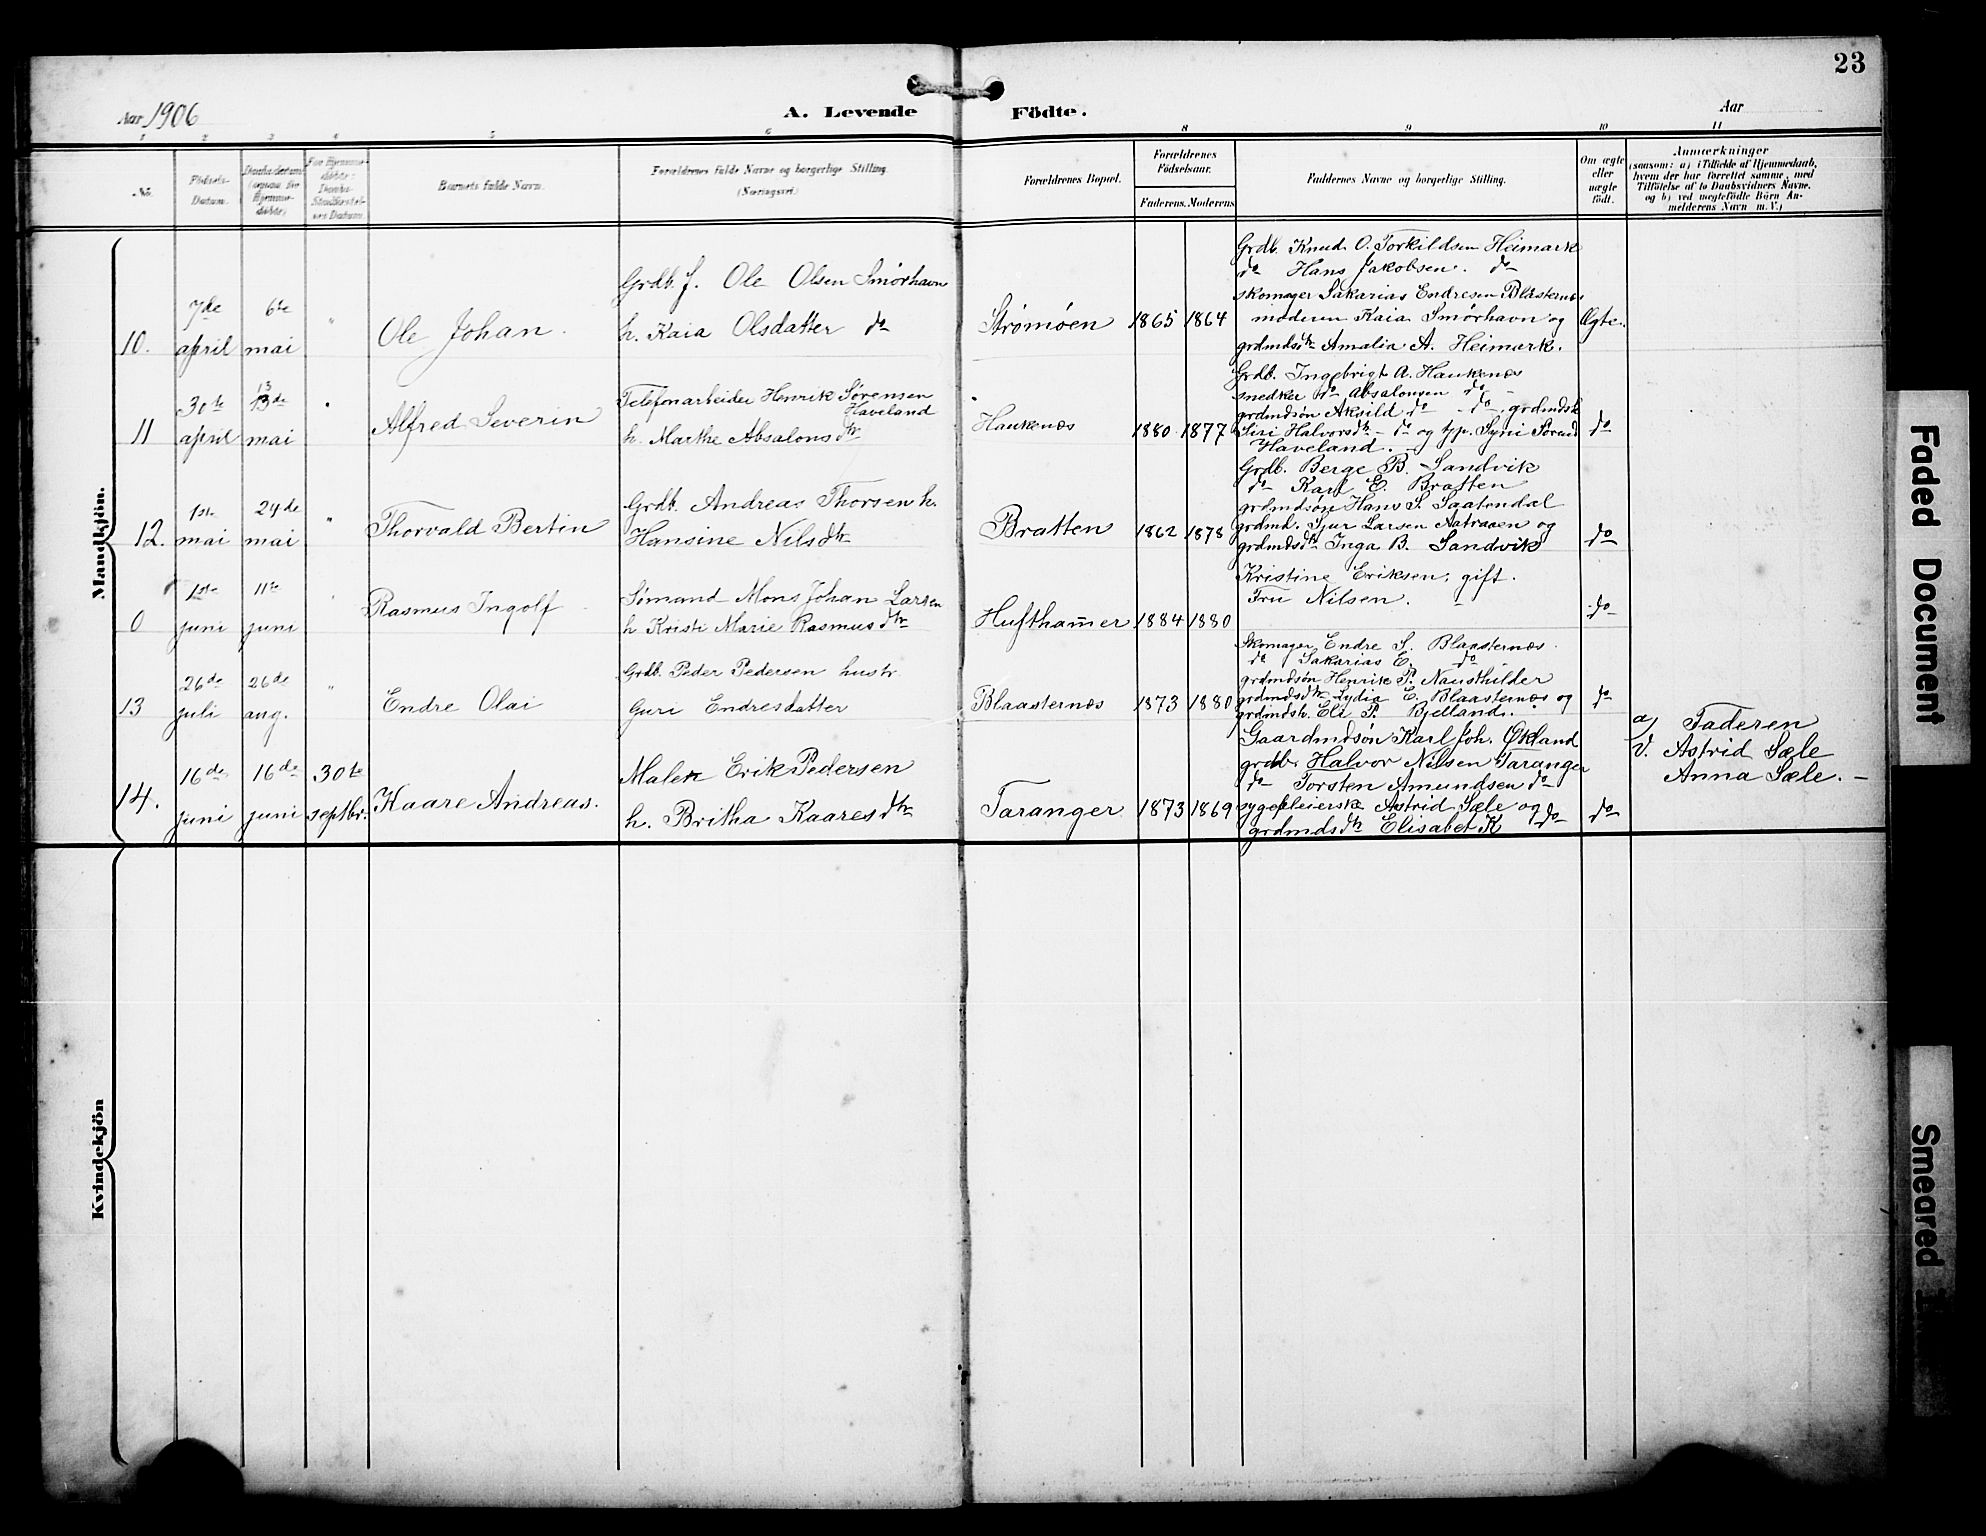 23
Aar 1906
A. Levende Födte.
Aar
1 2 3 4 5 6 8 9 10 11
No.
Födsels-Datum.
Daabsdatum (ogsaa for Hjemmedöbte)
For Hjemmedöbte: Daabs-Stadfæstelses Datum.
Barnets fulde Navn.
Forældrenes fulde Navne og borgerlige Stilling (Næringsvei)
Forældrenes Bopæl.
Forældrenes Födselsaar.
Faderens. Moderens
Faddernes Navne og borgerlige Stilling.
Om ægte eller uægte födt.
Anmærkninger
(saasom: a) i Tilfælde af Hjemmedaab,
hvem der har forrettet samme, med
Tilföielse af to Daabsvidners Navne,
og b) ved uægtefödte Börn An-
melderens Navn m. V.)
Mandkjön.
10.
7de april
6te mai
"
Ole Johan.
Grdb. f. Ole Olsen Smørhavn
h. Kaia Olsdatter do
Strømøen
1865 1864
Grdb. Knud O. Torkildsen Heimark
do Hans Jakobsen. do
skomager Sakarias Endresen Blåsternes
moderen Kaia Smørhavn og
grdmdsdtr Amalia A. Heimark.
Ægte.
11
30te april
13de mai
13
Alfred Severin
Telefonarbeider Henrik Sørensen
Haveland
h. Marthe Absalonsdtr
Haukenæs
1880 1877
Grdb. Ingebrigt A. Haukenæs
snedker do Absalonsen do
grdmdsøn Aksild do - do, grdmdsk
Siri Halvorsdtr - do og tjp. Syni
Haveland.
do
12.
1ste mai
24de mai
"
Thorvald Bertin
Grdb. Andreas Thorsen h.
Hansine Nilsdtr
Bratten
1862 1878
Grdb. Berge B. Sandvik
do Karl E. Bratten
grdmdsøn Hans S. Saatendal
grdmd. Sjur Larsen Aatraaen og
grdmdsdtr Inga B. Sandvik
do
0
1ste juni
11te juni
Rasmus Ingolf
Sømand Mons Johan Larsen
h Kristi Marie Rasmusdtr
Hufthammer
1884 1880
Kristine Eriksen, gift.
Fru Nilsen. -
do
13
26de juli
26de aug.
"
Endre Olai
Grdb. Peder Pedersen hustr.
Guri Endresdatter
Blaasternæs
1873 1880
Skomager Endre S. Blaasternæs.
do Sakarias E. do
grdmdsøn Henrik P. Naustkilder
grdmdsdtr Lydia E. Blaasternæs og
grdmdsk. Eli P. Bjelland.
do
14.
16de juni
16de juni
30te septbr.
Kaare Andreas.
Maler Erik Pedersen
h. Britha Kaaresdtr
Taranger
1873 1869
Gaardmdsøn Karl Joh. Økland
grdbr. Halvor Nilsen Taranger
do Torsten Amundsen do
sygepleierske Astrid Sæle og
grdmdsdtr Elisabet K do
do
a) Faderen
V. Astrid Sæle
Anna Sæle. -
Kvindekjön
Faded Document
Smeared